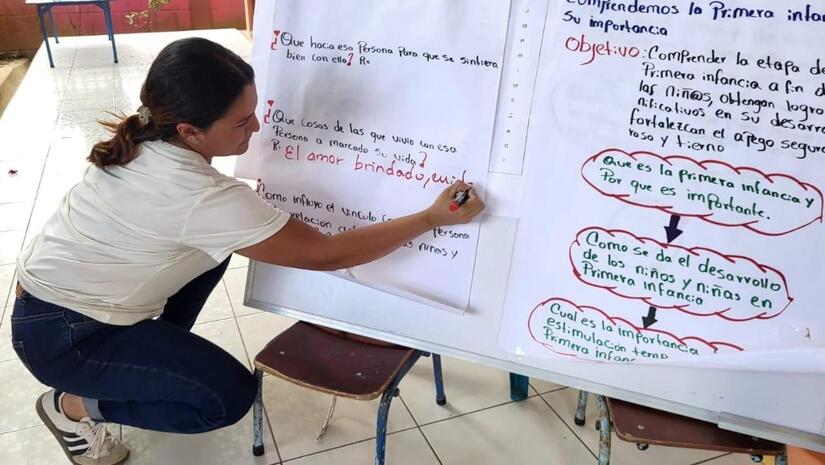 ¿Que hacia esa Persona Para que se sintiera
bien con ella? R=
¿Que cosas de las que vivio con esa
Persona a marcado su vida?
R: El amor brindado, cuid
Como influyo el vinculo persona
relacion
niñas y
Comprendemos la Primera
Su importancia
Objetivo: Comprender la etapa de
Primera infancia a fin
las niñ@s, obtengan logro
nificativos en su desarr
fortalezcan el apego segur
roso y tierno
Que es la primera infancia y
Por que es importante.
Como se da el desarrollo
de los niños y niñas en
Primera infancia
Cual es la importancia
estimulación temp
Primera infanc